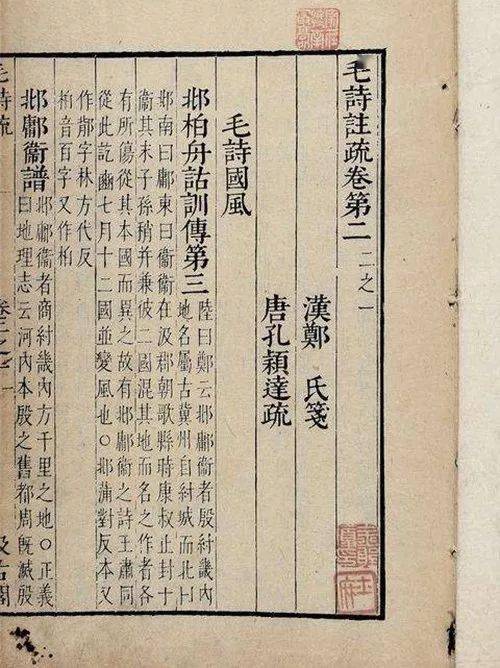 毛詩註疏卷第二 二之一
漢鄭 氏箋
唐孔穎達疏
毛詩國風
邶柏舟詁訓傳第三 陸曰鄭云邶鄘衞者殷紂畿內
地名屬古冀州自紂城而北曰
邶南曰鄘東曰衞衞在汲郡朝歌縣時康叔止封于
衞其末子孫稍并兼彼二國混其地而名之作者各
有所傷從其本國而異之故有邶鄘衞之詩王肅同
從此訖豳七月十二國並變風也○邶蒲對反本又
作鄁字林方代反
柏音百字又作栢
邶鄘衞譜 邶鄘衞者商紂畿內方千里之地○正義
曰地理志云河內本殷之舊都周既滅殷
毛詩疏 卷二之一 汲古閣